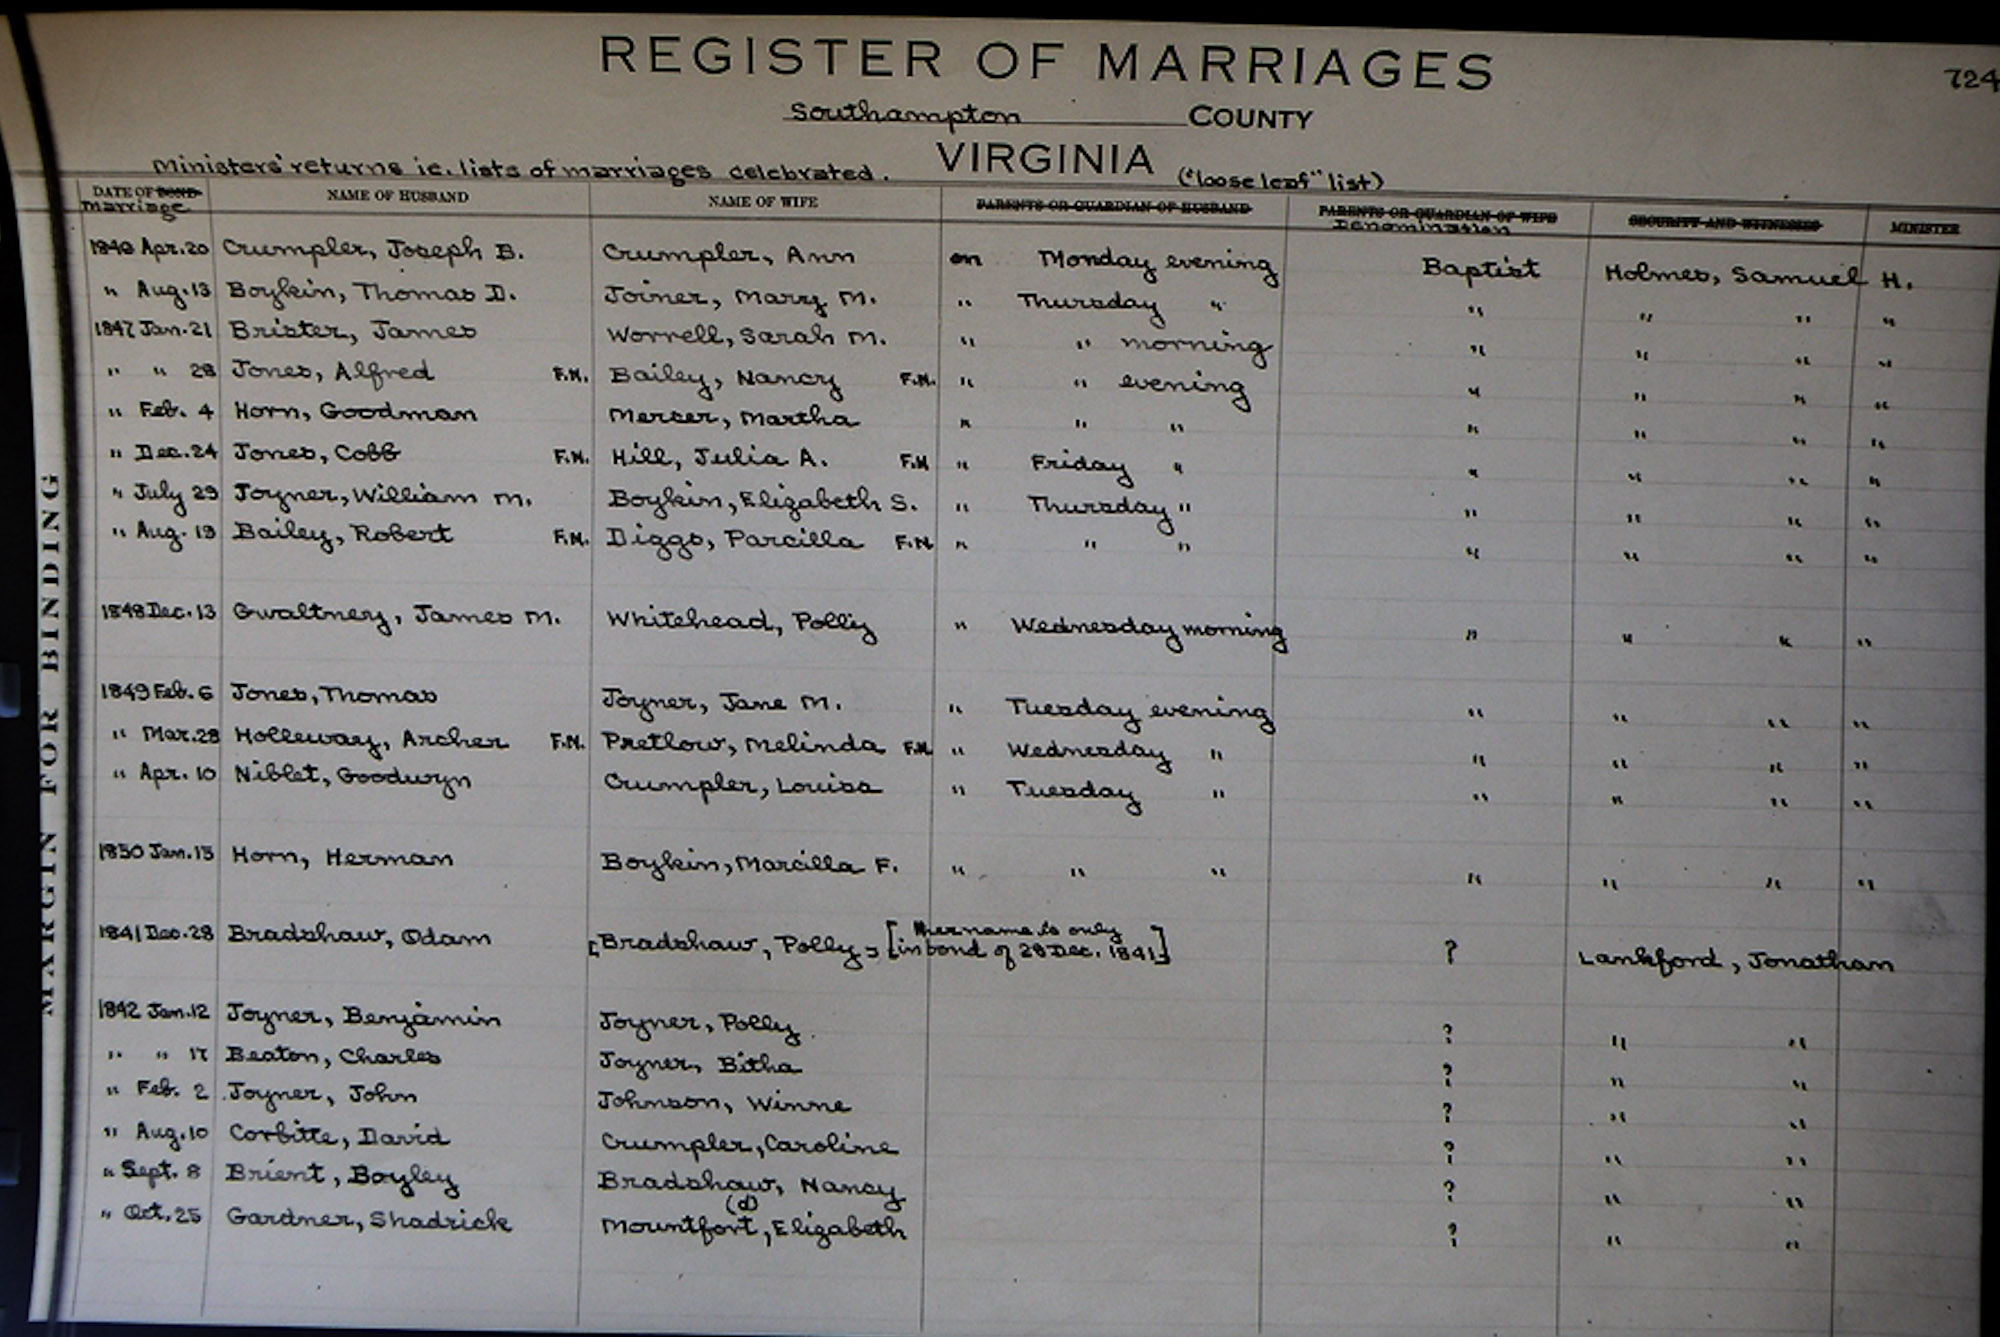 REGISTER OF MARRIAGES
724
Southampton COUNTY
Ministers' returns ie. lists of marriages celebrated. VIRGINIA ("loose leaf" list)
DATE OF BOND Marriage NAME OF HUSBAND NAME OF WIFE PARENTS OR GUARDIAN OF HUSBAND PARENTS OR GUARDIAN OF WIFE Denomination SECURITY AND WITNESSES MINISTER
Apr. 20 Crumpler, Joseph B. Crumpler, Ann on Monday evening Baptist Holmes, Samuel H.
" Aug. 13 Boykin, Thomas D. Joiner, Mary M. " Thursday " " " " "
1847 Jan. 21 Brister, James Worrell, Sarah M. " " morning " " " "
" " 28 Jones, Alfred F.N. Bailey, Nancy F.N. " " evening " " " "
" Feb. 4 Horn, Goodman Mercer, Martha " " " " " " "
" Dec. 24 Jones, Cobb F.N. Hill, Julia A. F.N " Friday " " " " "
" July 29 Joyner, William M. Boykin, Elizabeth S. " Thursday " " " " "
" Aug. 19 Bailey, Robert F.N. Diggs, Parcilla F.N " " " " " " "
1848 Dec. 13 Gwaltney, James M. Whitehead, Polly " Wednesday morning " " " "
1849 Feb. 6 Jones, Thomas Joyner, Jane M. " Tuesday evening " " " "
" Mar. 28 Holleway, Archer F.N. Pretlow, Melinda F.N. " Wednesday " " " " "
" Apr. 10 Niblet, Goodwyn Crumpler, Louisa " Tuesday " " " " "
1850 Jan. 15 Horn, Herman Boykin, Marcilla F. " " " " " " "
1841 Dec. 28 Bradshaw, Odam [Bradshaw, Polly] [Her name is only in bond of 28 Dec. 1841] ? Lankford, Jonathan
1842 Jan. 12 Joyner, Benjamin Joyner, Polly ? " "
" " 17 Beaton, Charles Joyner, Bitha ? " "
" Feb. 2 Joyner, John Johnson, Winne ? " "
" Aug. 10 Corbitte, David Crumpler, Caroline ? " "
" Sept. 8 Brient, Boyley Bradshaw, Nancy ? " "
(d)
" Oct. 25 Gardner, Shadrick Mountfort, Elizabeth ? " "
MARGIN FOR BINDING